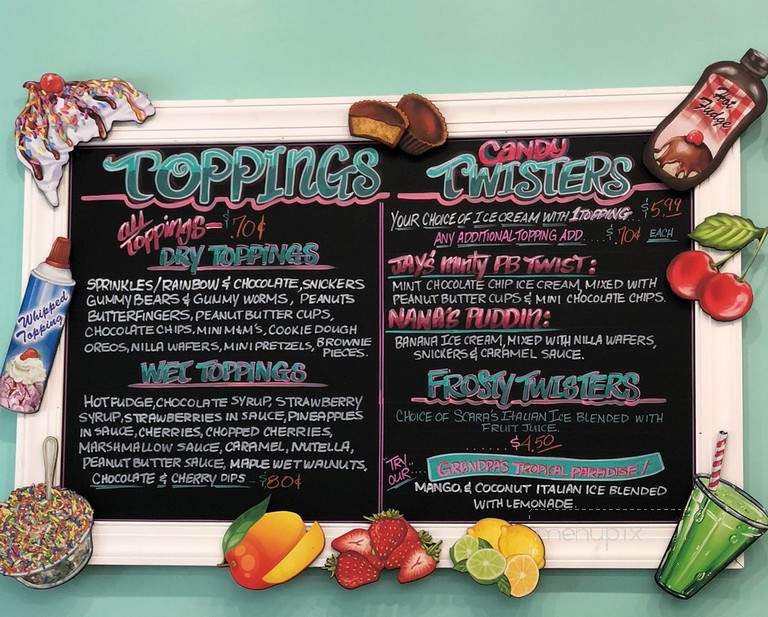 TOPPINGS
all toppings - $70¢
DRY TOPPINGS
SPRINKLES/RAINBOW & CHOCOLATE, SNICKERS
GUMMY BEARS & GUMMY WORMS, PEANUTS
BUTTERFINGERS, PEANUT BUTTER CUPS,
CHOCOLATE CHIPS, MINI M&M'S, COOKIE DOUGH
OREOS, NILLA WAFERS, MINI PRETZELS, BROWNIE
PIECES.
WET TOPPINGS
HOT FUDGE, CHOCOLATE SYRUP, STRAWBERRY
SYRUP, STRAWBERRIES IN SAUCE, PINEAPPLES
IN SAUCE, CHERRIES, CHOPPED CHERRIES,
MARSHMALLOW SAUCE, CARAMEL, NUTELLA,
PEANUT BUTTER SAUCE, MAPLE WET WALNUTS,
CHOCOLATE & CHERRY DIPS - $80¢
CANDY
TWISTERS
YOUR CHOICE OF ICE CREAM WITH 1 TOPPING... $5.99
ANY ADDITIONAL TOPPING ADD.... $.70¢ EACH
JAY'S minty PB TWIST:
MINT CHOCOLATE CHIP ICE CREAM, MIXED WITH
PEANUT BUTTER CUPS & MINI CHOCOLATE CHIPS.
NANA'S PUDDIN:
BANANA ICE CREAM, MIXED WITH NILLA WAFERS,
SNICKERS & CARAMEL SAUCE.
FROSTY TWISTERS
CHOICE OF SCARA'S ITALIAN ICE BLENDED WITH
FRUIT JUICE.
...... $4.50
TRY OUR... GRANDPAS TROPICAL PARADISE!
MANGO & COCONUT ITALIAN ICE BLENDED
WITH LEMONADE.
Hot Fudge
Whipped Topping
menupix